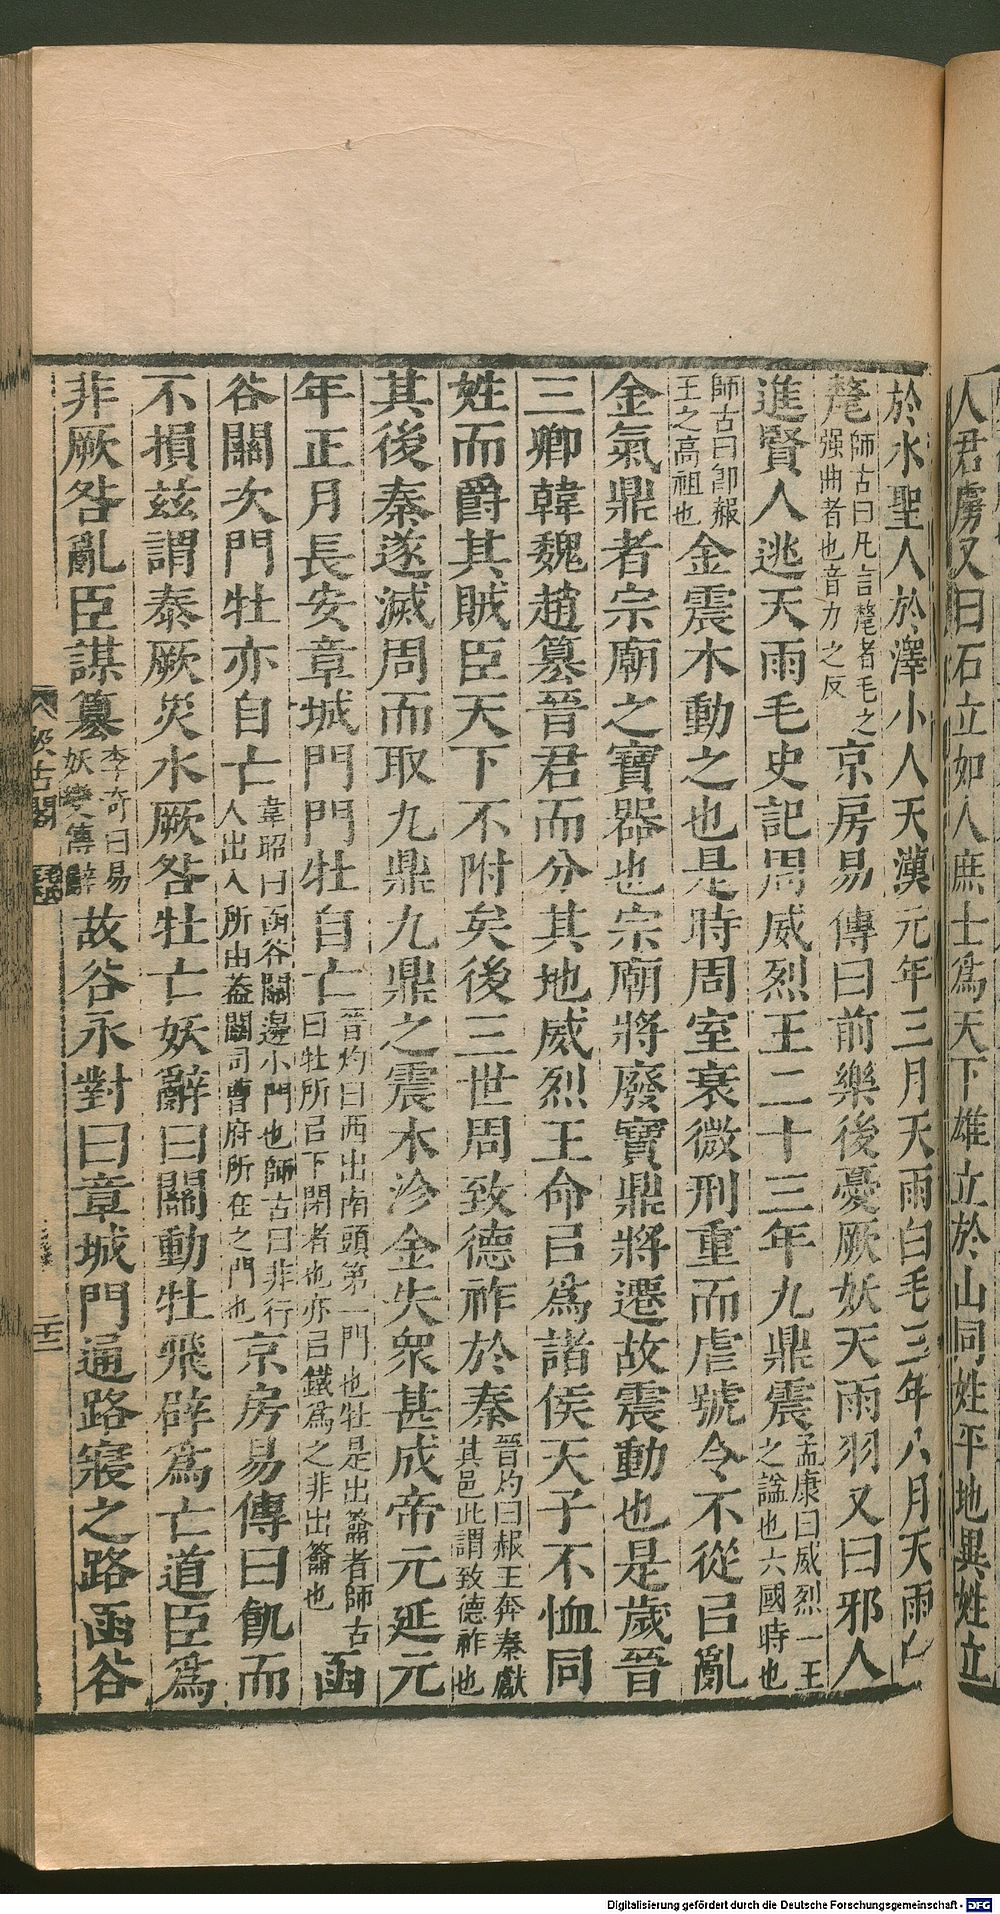 人君虜又曰石立如人庶士爲天下雄立於山同姓平地異姓立
於水聖人於澤小人天漢元年三月天雨白毛三年八月天雨
氂師古曰凡言氂者毛之强曲者也音力之反京房易傳曰前樂後憂厥妖天雨羽又曰邪人
進賢人逃天雨毛史記周威烈王二十三年九鼎震孟康曰威烈一王之諡也六國時也
師古曰卽赧王之高祖也金震木動之也是時周室衰微刑重而虐號令不從㠯亂
金氣鼎者宗廟之寶器也宗廟將廢寶鼎將遷故震動也是歲晉
三卿韓魏趙篡晉君而分其地威烈王命㠯爲諸侯天子不恤同
姓而爵其賊臣天下不附矣後三世周致德祚於秦晉灼曰赧王奔秦獻其邑此謂致德祚也
其後秦遂滅周而取九鼎九鼎之震木沴金失衆甚成帝元延元
年正月長安章城門門牡自亡晉灼曰西出南頭第一門也牡是出籥者師古曰牡所㠯下閉者也亦㠯鐵爲之非出籥也函
谷關次門牡亦自亡韋昭曰函谷關邊小門也師古曰非行人出入所由蓋關司曹府所在之門也京房易傳曰飢而
不損兹謂泰厥災水厥咎牡亡妖辭曰關動牡飛辟爲亡道臣爲
非厥咎亂臣謀篡李奇曰易妖變傳辭故谷永對曰章城門通路寢之路函谷
汲古閣
Digitalisierung gefördert durch die Deutsche Forschungsgemeinschaft - DFG